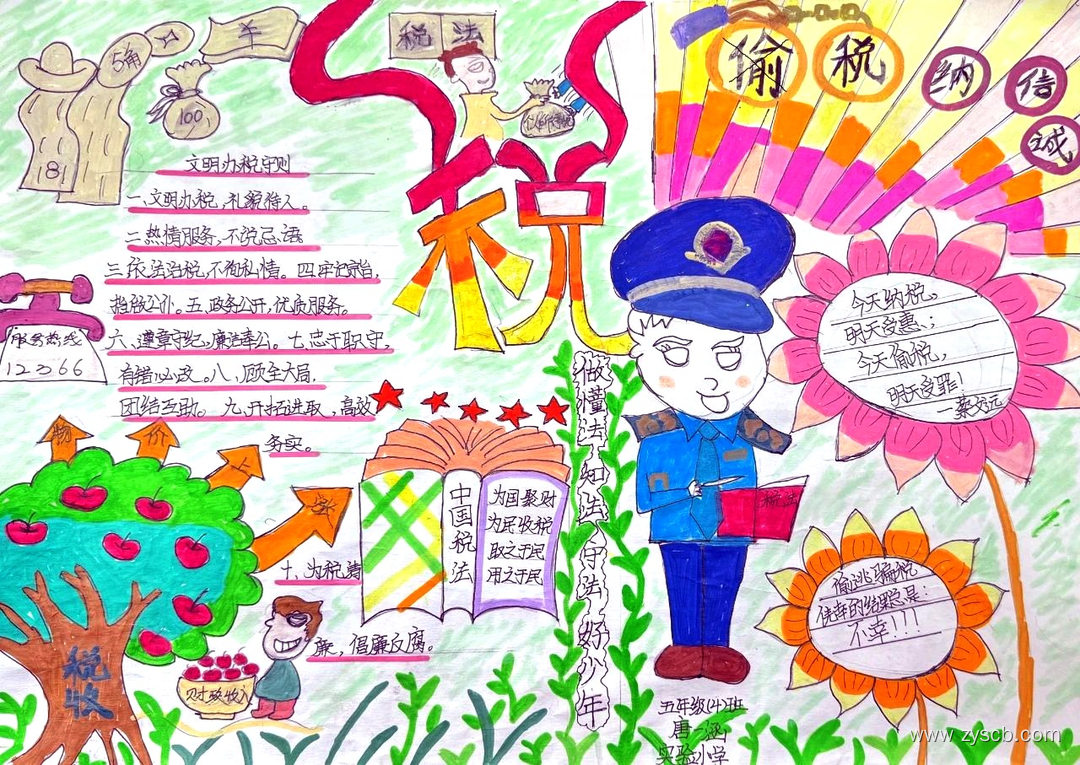 5角
羊
100
181
税法
偷税
纳
信
诚
税
文明办税守则
一、文明办税，礼貌待人。
二、热情服务，不说忌语
三、依法治税，不徇私情。四、牢记宗旨，
指做公仆。五、政务公开，优质服务。
六、遵章守纪，廉洁奉公。七、忠于职守，
有错必改。八、顾全大局，
团结互助。九、开拓进取，高效
务实。
十、为税清
廉，倡廉反腐。
服务热线
12366
物
价
上
涨
税收
财政收入
中国税法
为国聚财
为民收税
取之于民
用之于民
做懂法、知法、守法好少年
税法
今天纳税，
明天受惠；
今天偷税，
明天受罪！
一菜交元
偷逃骗税
侥幸的结果总是：
不幸！！！
五年级(4)班
唐一涵
实验小学
www.zyscb.com